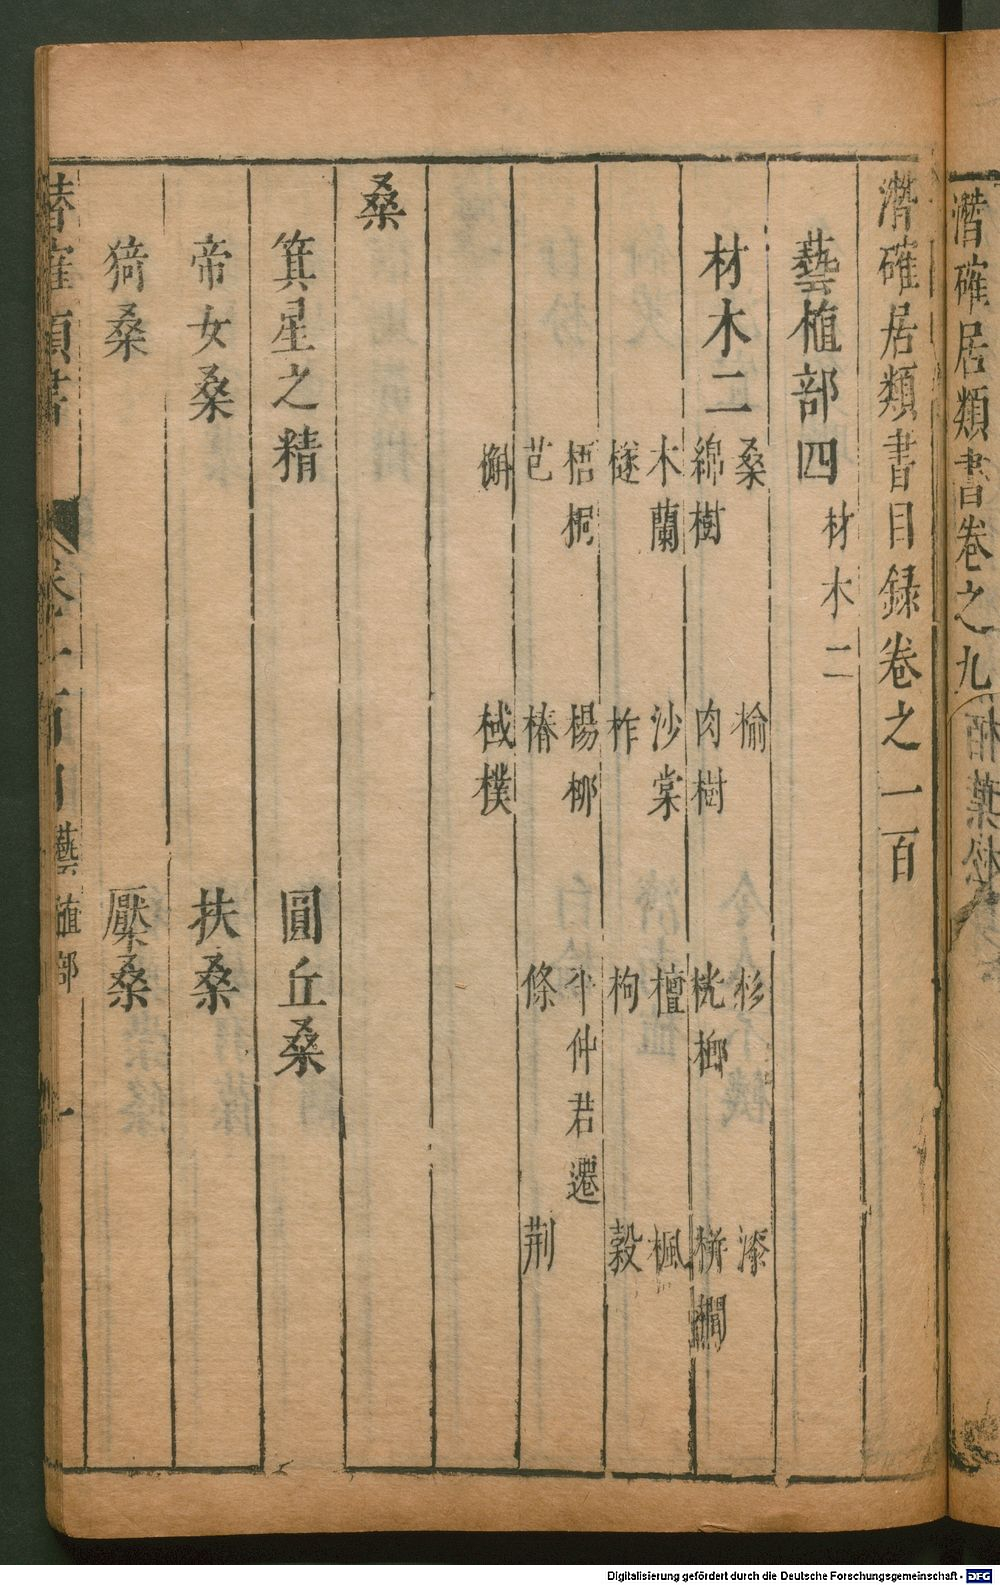 潛確居類書卷之九
潛確居類書目録卷之一百
藝植部四 材木二
材木二
桑 榆 杉 漆
綿樹 肉樹 桄榔 栟櫚
木蘭 沙棠 檀 楓
檖 柞 枸 榖
梧桐 楊柳 平仲君遷
芑 椿 條 荆
槲 棫樸
桑
箕星之精 圓丘桑
帝女桑 扶桑
猗桑 檿桑
卷一百目 藝植部 一
Digitalisierung gefördert durch die Deutsche Forschungsgemeinschaft - DFG